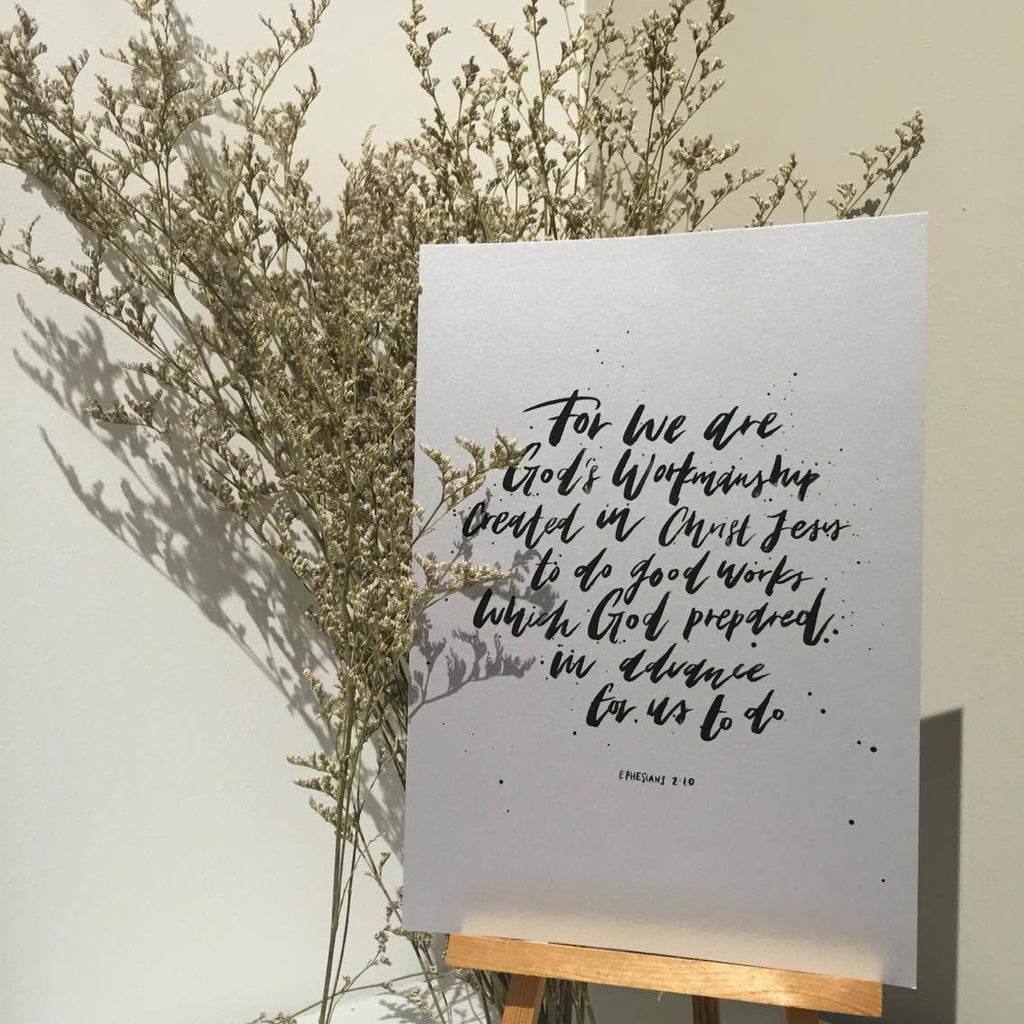 For we are
God's Workmanship
Created in Christ Jesus
to do good works
Which God prepared
in advance
for us to do
EPHESIANS 2:10